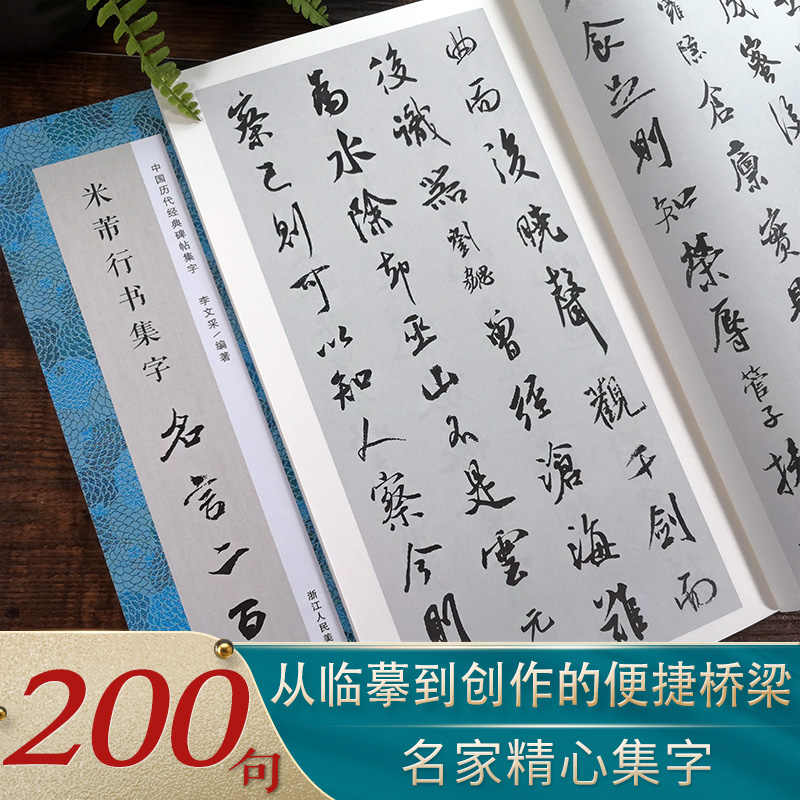 成蜜後
羅隱倉廩實則
食足則知榮辱管子扶
曲而後曉聲觀千剑而
後識器劉勰曾經滄海難
為水除却巫山不是雲元
察己則可以知人察今則
中国历代经典碑帖集字
李文采/编著
米芾行书集字
名言二百
浙江人民美
200句
从临摹到创作的便捷桥梁
名家精心集字